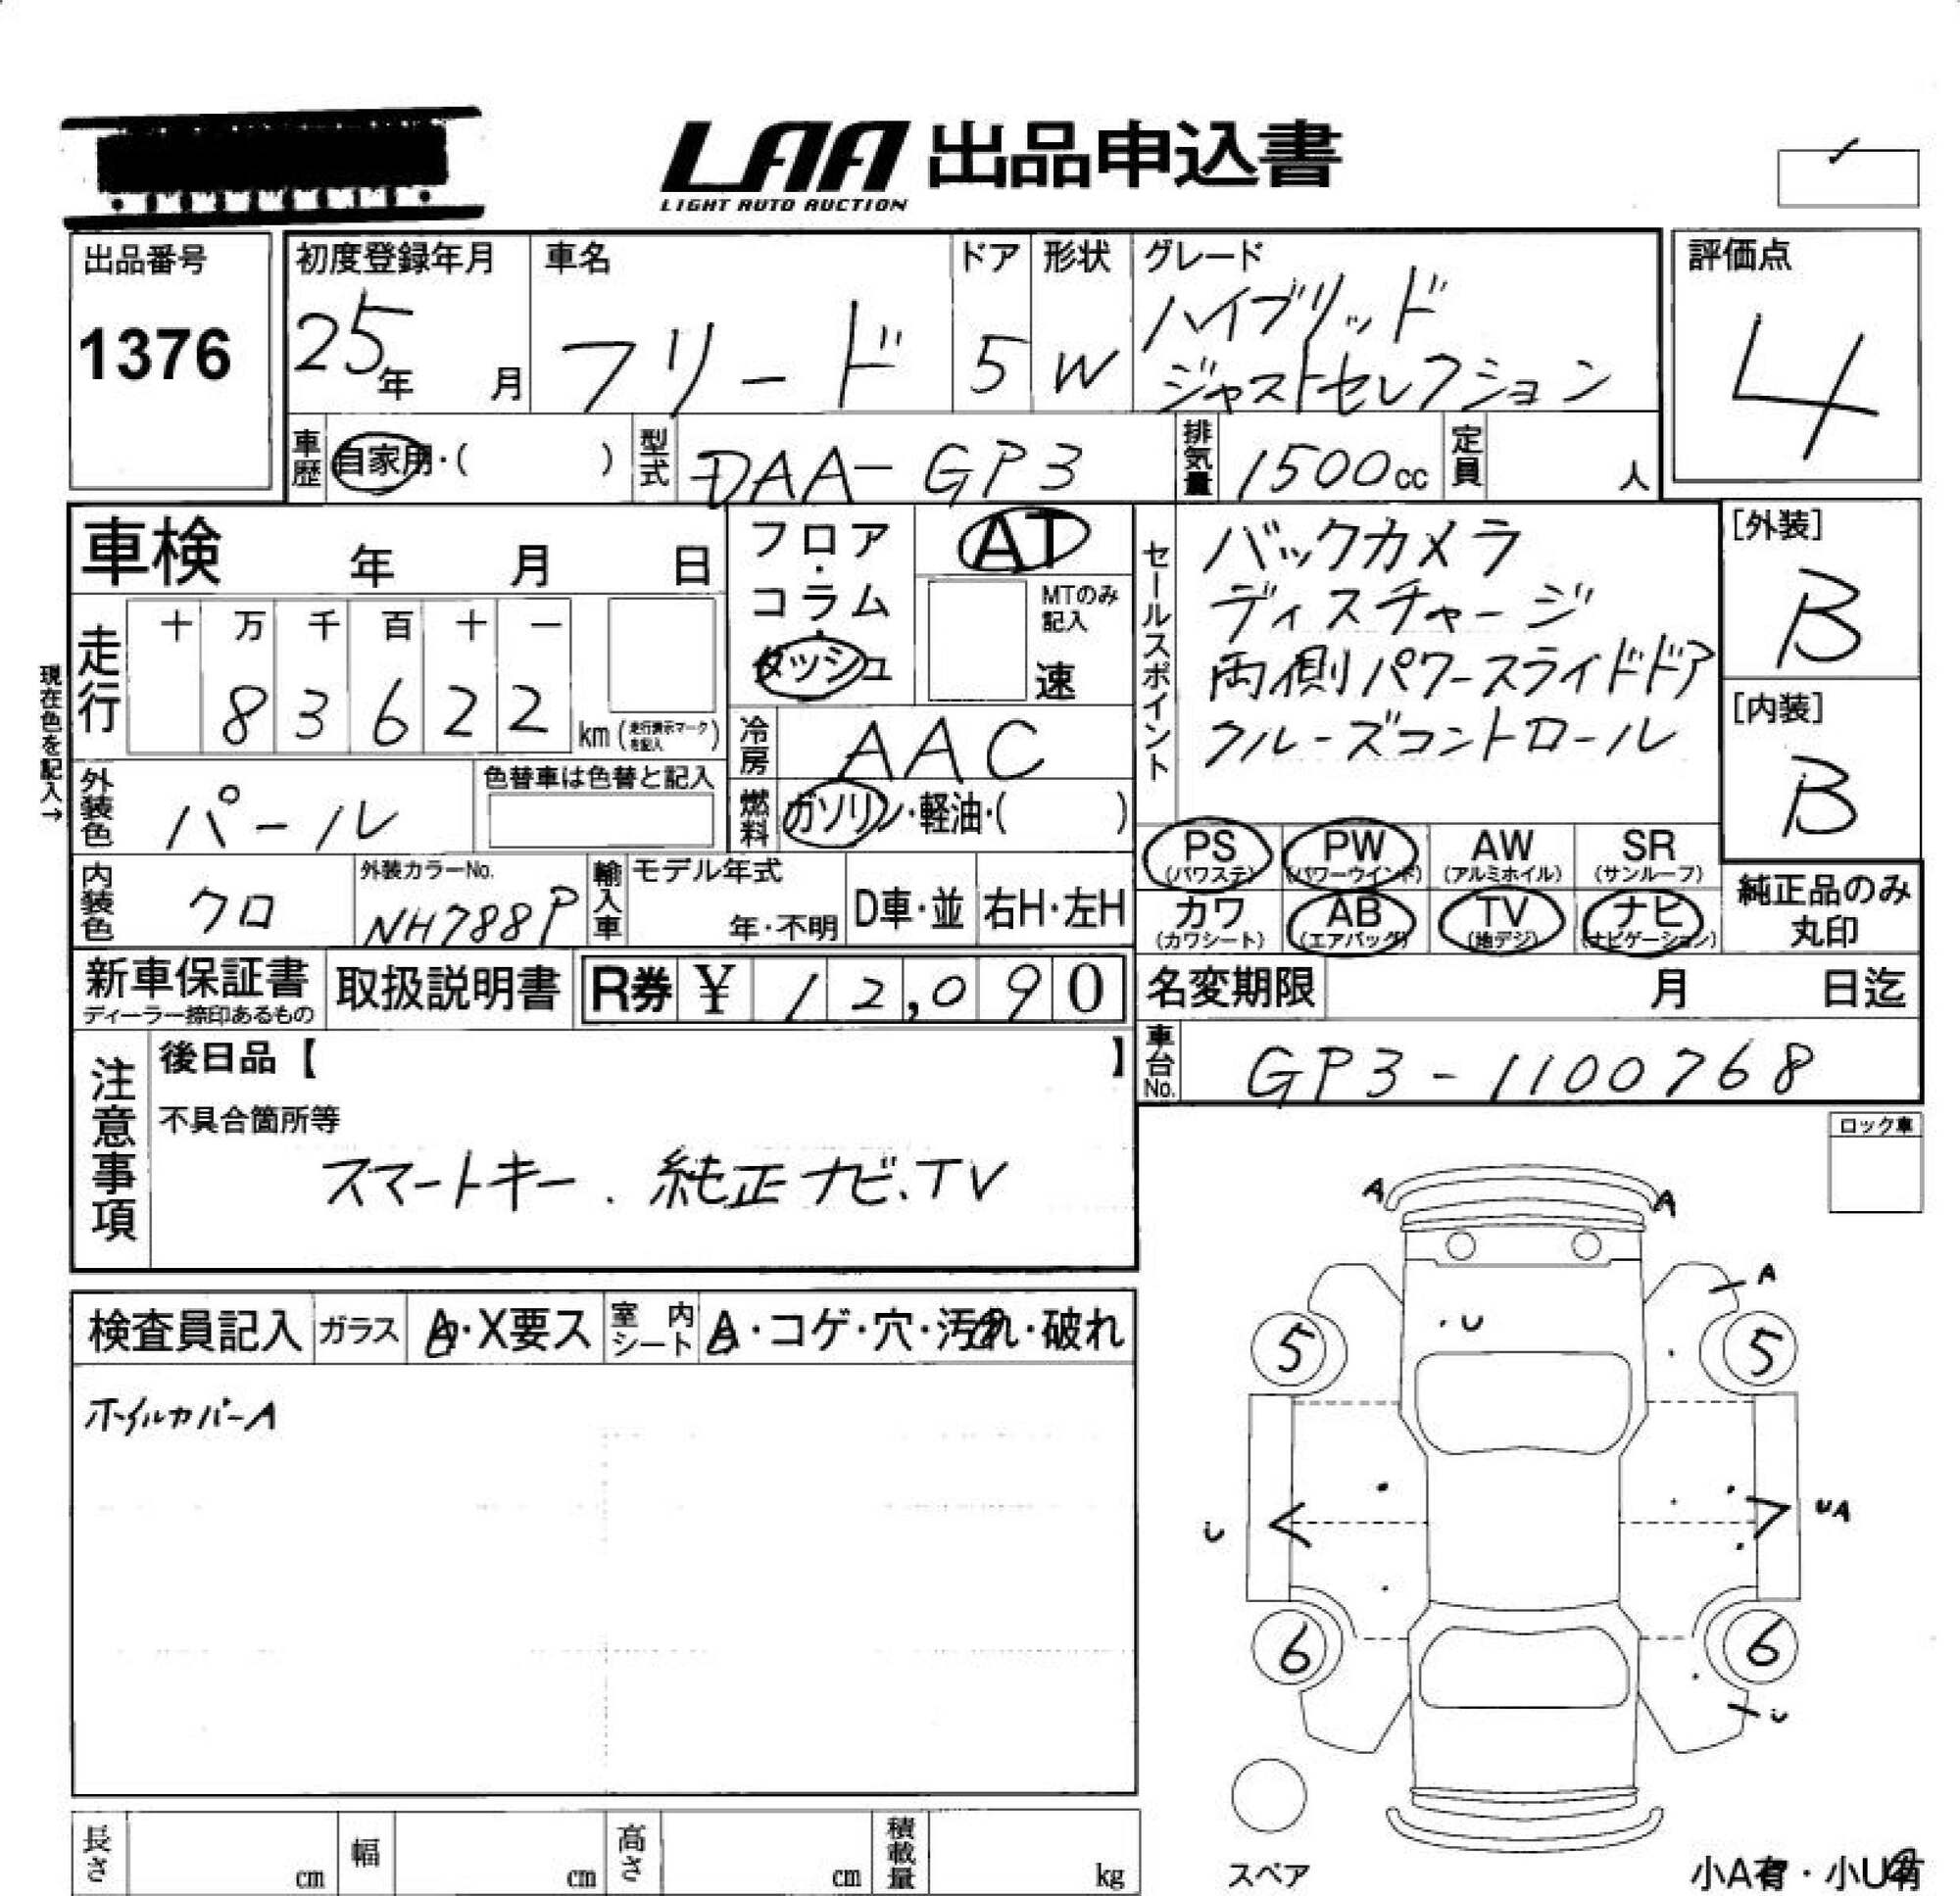 LAA 出品申込書
LIGHT AUTO AUCTION
出品番号
1376
初度登録年月
25年 月
車名
フリード
ドア
5
形状
W
グレード
ハイブリッド
ジャストセレクション
評価点
4
車歴 自家用・( )
型式 DAA-GP3
排気量 1500cc
定員 人
車検 年 月 日
フロア・コラム・ダッシュ
AT
MTのみ記入
速
セールスポイント
バックカメラ
ディスチャージ
両側パワースライドドア
クルーズコントロール
[外装]
B
[内装]
B
現在色を記入→
走行
十 万 千 百 十 一
8 3 6 2 2 km(走行表示マークを記入)
冷房 AAC
燃料 ガソリン・軽油・( )
外装色 パール
色替車は色替と記入
内装色 クロ
外装カラーNo.
NH788P
輸入車
モデル年式
年・不明
D車・並
右H・左H
PS (パワステ)
PW (パワーウインド)
AW (アルミホイル)
SR (サンルーフ)
カワ (カワシート)
AB (エアバッグ)
TV (地デジ)
ナビ (ナビゲーション)
純正品のみ
丸印
新車保証書
ディーラー捺印あるもの
取扱説明書
R券 ¥ 12,090
名変期限 月 日迄
車台No. GP3-1100768
注意事項
後日品【 】
不具合箇所等
スマートキー. 純正ナビ、TV
ロック車
検査員記入
ガラス
A・X要ス
室内シート
A・コゲ・穴・汚れ・破れ
ホイルカバーA
A A
A
・U
5 5
U UA
6 6
U
スペア
小A有・小U有
長さ cm
幅 cm
高さ cm
積載量 kg